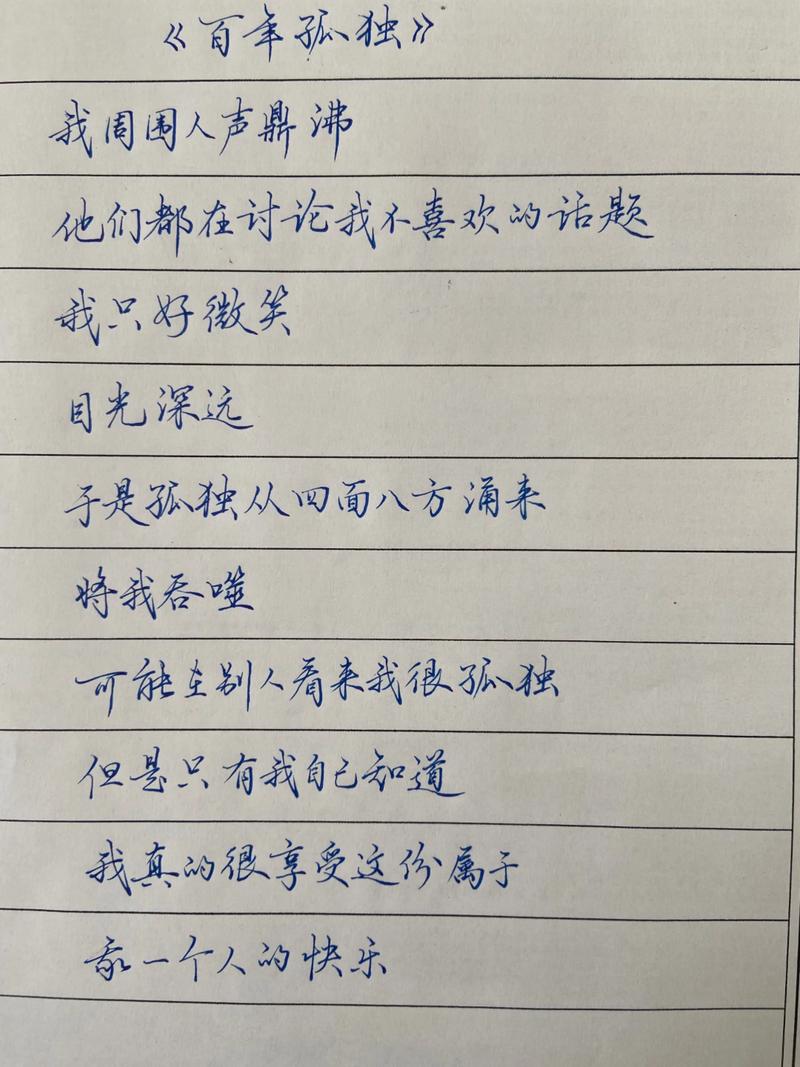 《百年孤独》
我周围人声鼎沸
他们都在讨论我不喜欢的话题
我只好微笑
目光深远
于是孤独从四面八方涌来
将我吞噬
可能在别人看来我很孤独
但是只有我自己知道
我真的很享受这份属于
我一个人的快乐